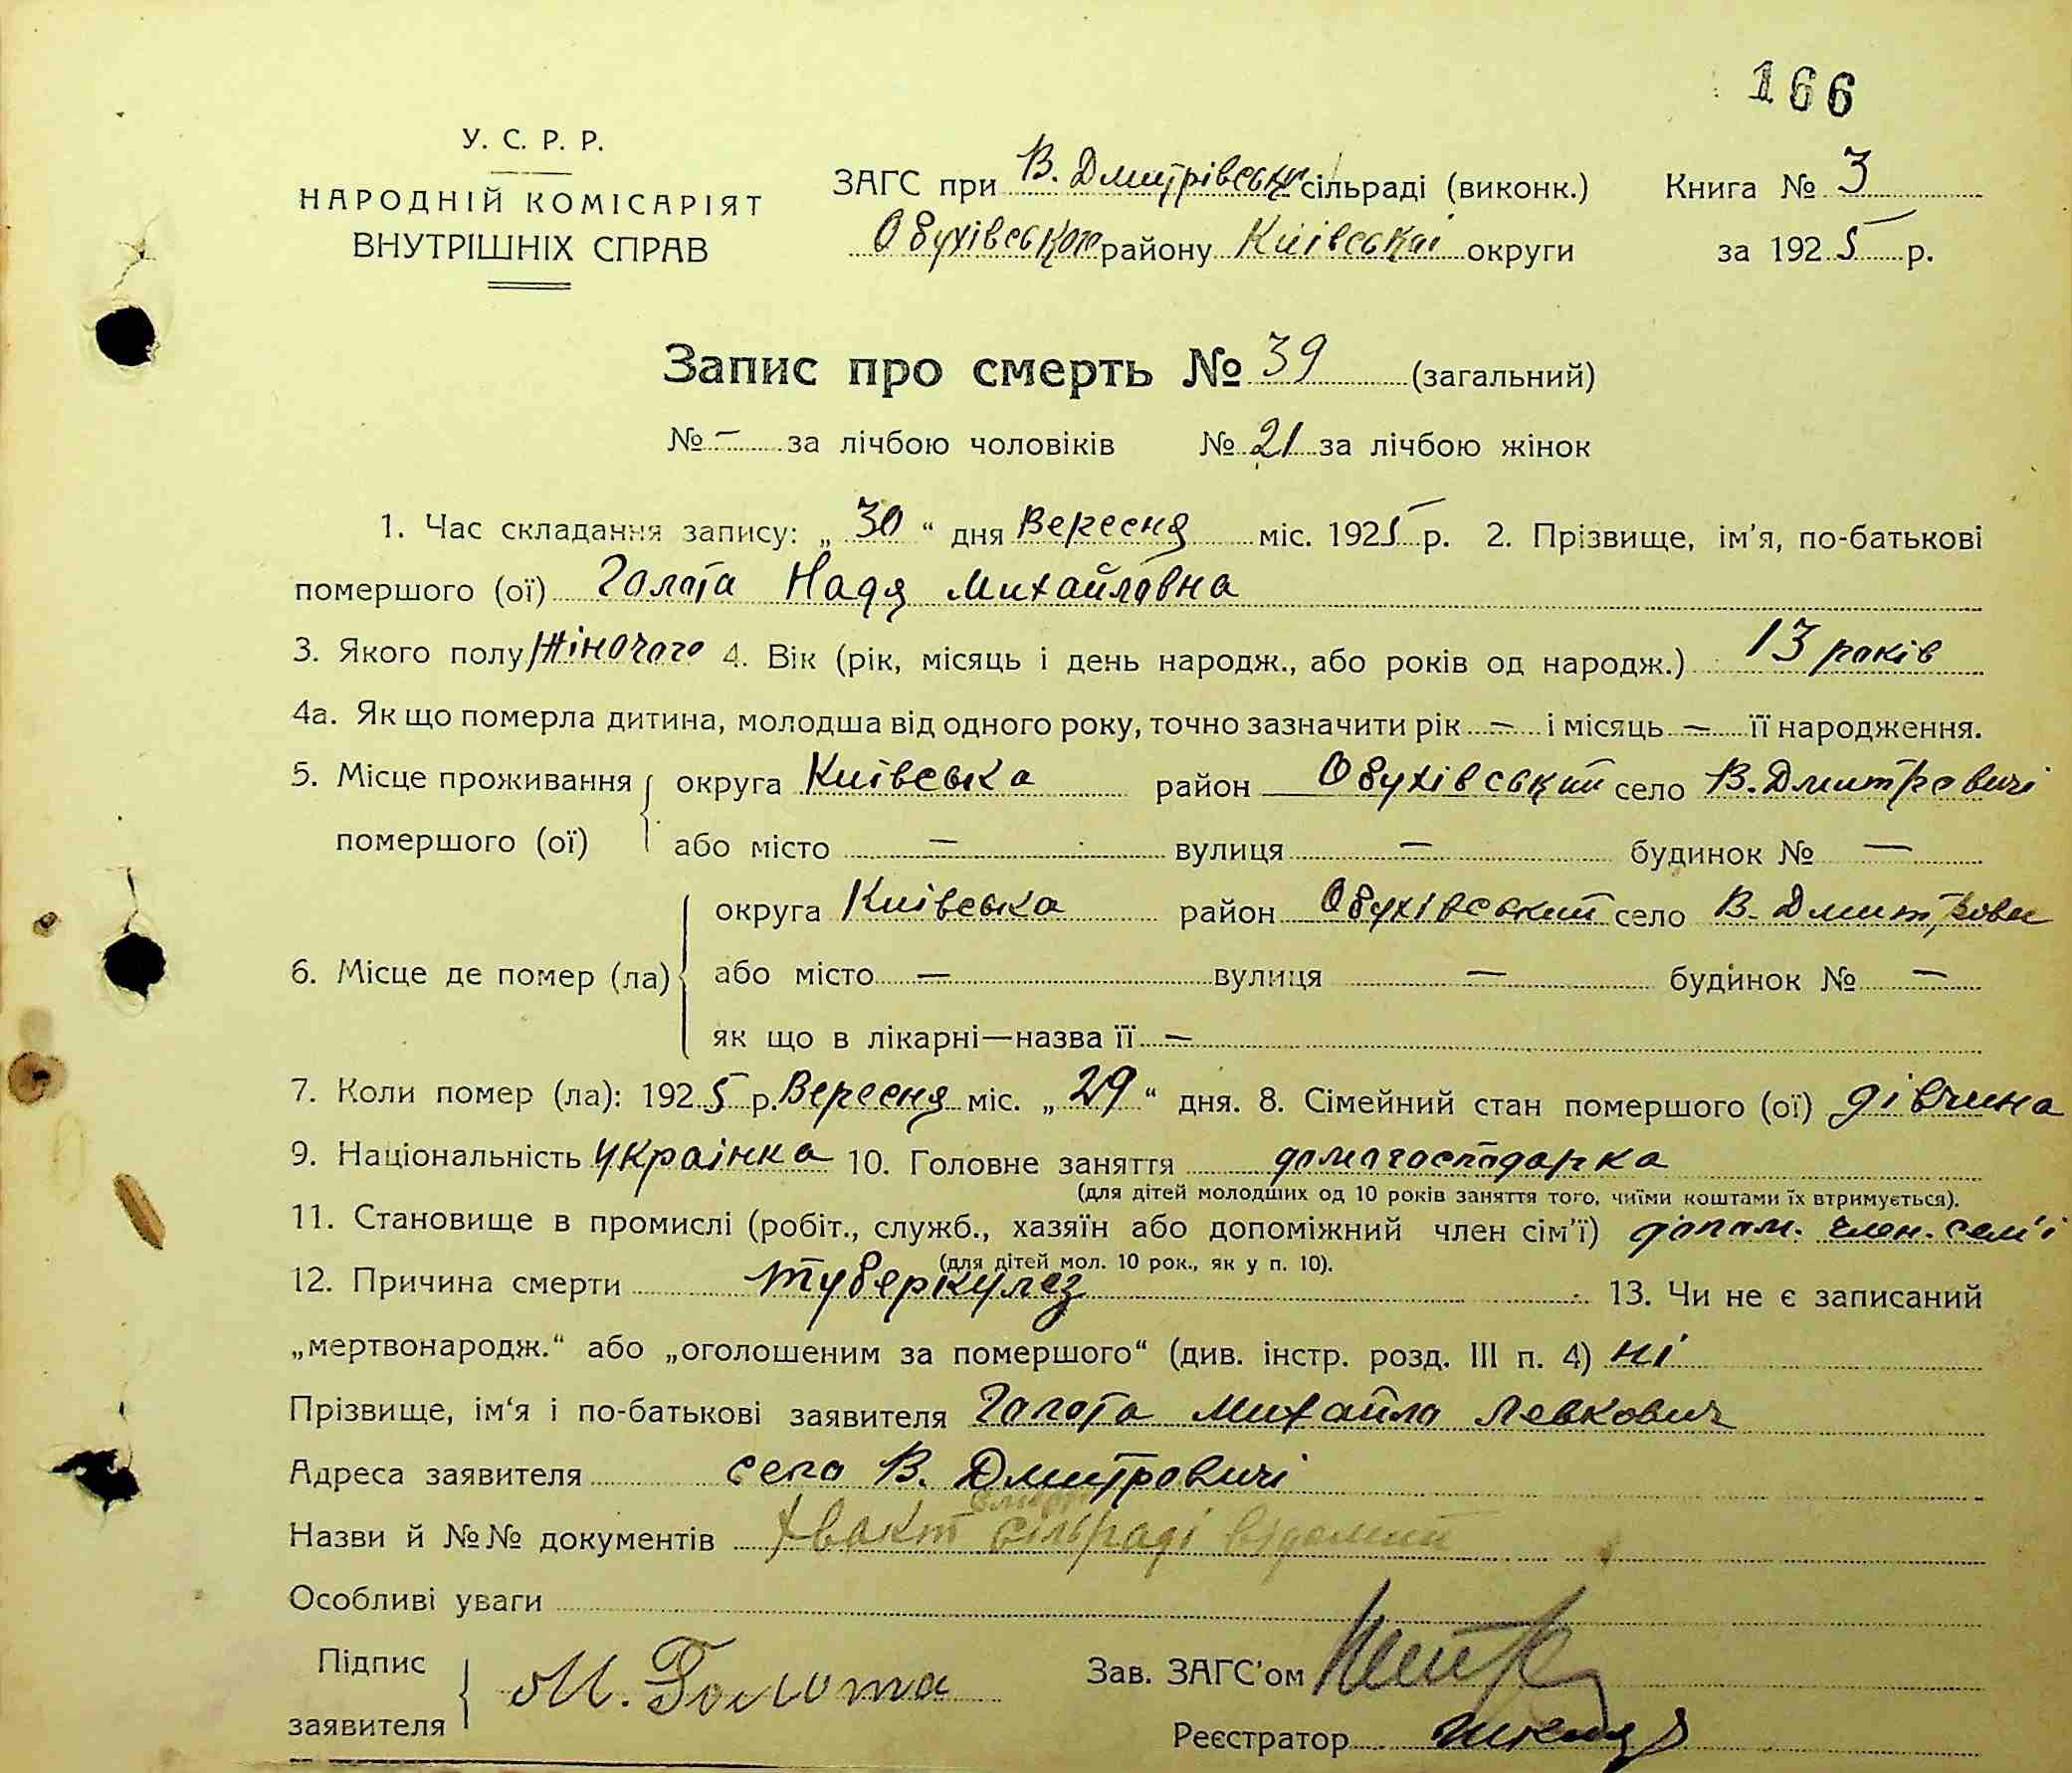 166
У. С. Р. Р.
НАРОДНІЙ КОМІСАРІЯТ
ВНУТРІШНІХ СПРАВ
ЗАГС при В. Дмитрівськ сільраді (виконк.) Книга № 3
Обухівського району Київської округи за 1925 р.
Запис про смерть № 39 (загальний)
№ – за лічбою чоловіків № 21 за лічбою жінок
1. Час складання запису: „ 30 “ дня Вересня міс. 1925 р. 2. Прізвище, ім’я, по-батькові
помершого (ої) Галота Надя Михайловна
3. Якого полу Жіночого 4. Вік (рік, місяць і день народж., або років од народж.) 13 років
4а. Як що померла дитина, молодша від одного року, точно зазначити рік – і місяць – її народження.
5. Місце проживання округа Київська район Обухівський село В. Дмитровичі
помершого (ої) або місто – вулиця – будинок № –
округа Київська район Обухівський село В. Дмитрови
6. Місце де помер (ла) або місто – вулиця – будинок № –
як що в лікарні—назва її –
7. Коли помер (ла): 1925 р. Вересня міс. „ 29 “ дня. 8. Сімейний стан помершого (ої) дівчина
9. Національність Українка 10. Головне заняття домогосподарка
(для дітей молодших од 10 років заняття того, чиїми коштами їх втримується).
11. Становище в промислі (робіт., служб., хазяїн або допоміжний член сім’ї) допом. член. семі
(для дітей мол. 10 рок., як у п. 10).
12. Причина смерти туберкулез 13. Чи не є записаний
„мертвонародж.“ або „оголошеним за помершого“ (див. інстр. розд. III п. 4) ні
Прізвище, ім‘я і по-батькові заявителя Галота Михайло Левкович
Адреса заявителя село В. Дмитровичі
Назви й №№ документів хвакт сільраді відомий
Особливі уваги
Підпис
заявителя М. Голота
Зав. ЗАГС’ом
Реєстратор